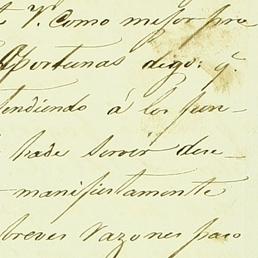 Y. Como mejor pro
oportunas digo: q.
tendiendo á los fun-
hade servir dese-
manifiestamente
breves razones paso